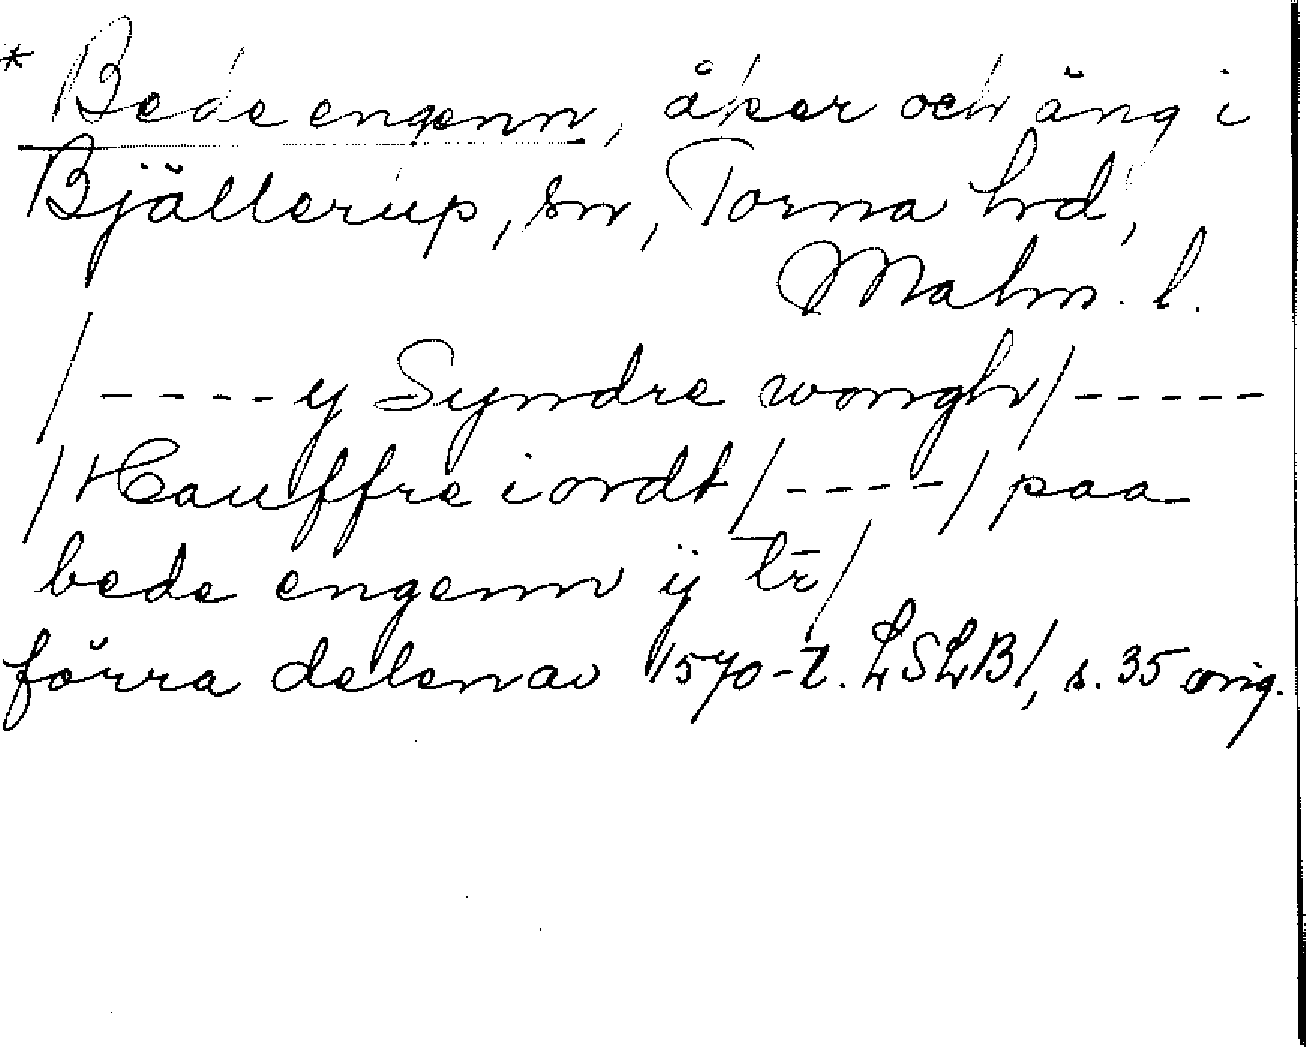 * Bede engenn, åker och äng i
Bjällerup, sn, Torna hd,
Malm. l.
/----y Syndre wongh/-----
/Hauffre iordt/----/paa
bede engenn ij tr̄/
förra delen av 1570-t. LSLB/, s. 35 orig.